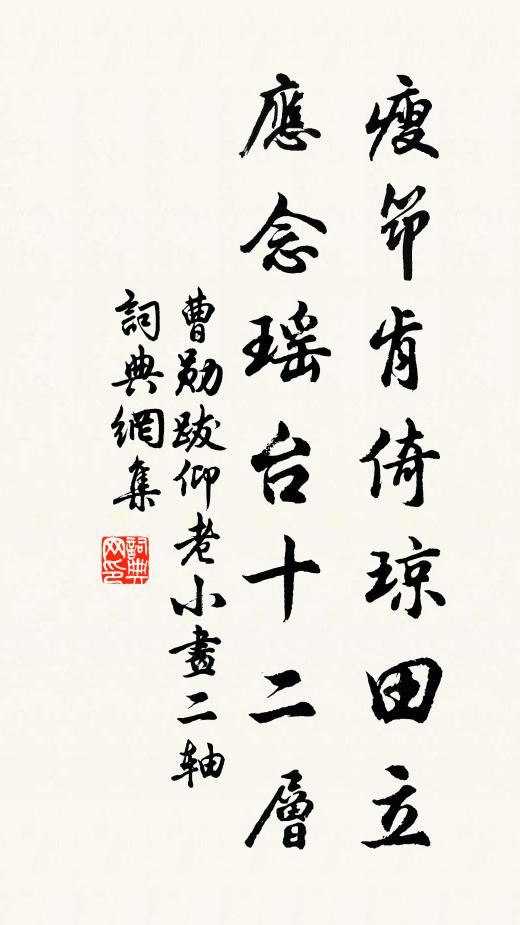 瘦笻肯倚琼田立
應念瑶台十二層
曹勛跋仰老小畫二軸
詞典網集
詞典
网印